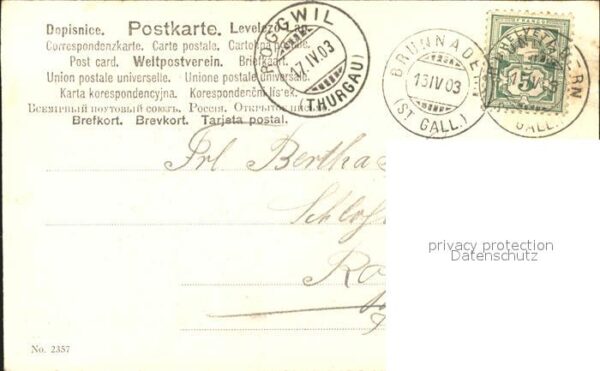 Dopisnice. Postkarte. Levelező-Lap.
Correspondenzkarte. Carte postale. Cartolina postale.
Post card. Weltpostverein. Briefkaart.
Union postale universelle. Unione postale universale.
Karta korespondencyjna. Korespondenční lístek.
Всемірный почтовый союзъ. Россія. Открытое
Brefkort. Brevkort. Tarjeta postal.
ROGGWIL
17.IV.03
(THURGAU)
BRUNNADERN
15.IV.03
(ST GALL.)
FRANCO
HELVETIA
5
GALL.)
Frl. Bertha
Schloss
Ro
privacy protection
Datenschutz
No. 2357